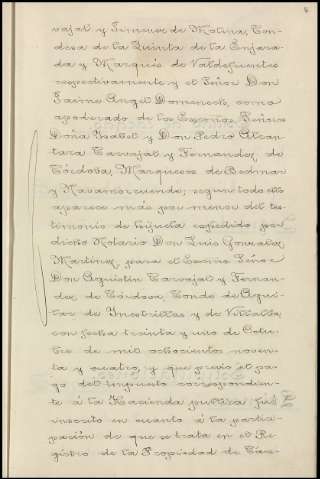 vajal y Jimenez de Molina, Con-
desa de la Quinta de la Enjara-
da y Marqués de Valdefuentes
respectivamente y el Señor Don
Jaime Angel Domenech, como
apoderado de los Excmos. Señores
Doña Ysabel y Don Pedro Alcan-
tara Carvajal y Fernandez de
Córdoba, Marqueses de Bedmar
y Navamorcuende; segun todo ello
aparece más por menor del tes-
timonio de hijuela expedido por
dicho Notario Don Luis Gonzalez
Martinez, para el Excmo Señor
Don Agustin Carvajal y Fernan-
dez de Córdova, Conde de Aguilar
de Inestrillas y de Villalba,
con fecha treinta y uno de Octu-
bre de mil ochocientos noven-
ta y cuatro, y que previo el pa-
go del impuesto correspondien-
te á la Hacienda publica fué
inscrito en cuanto á la partici-
pación de que se trata en el Re-
gistro de la Propiedad de Các-